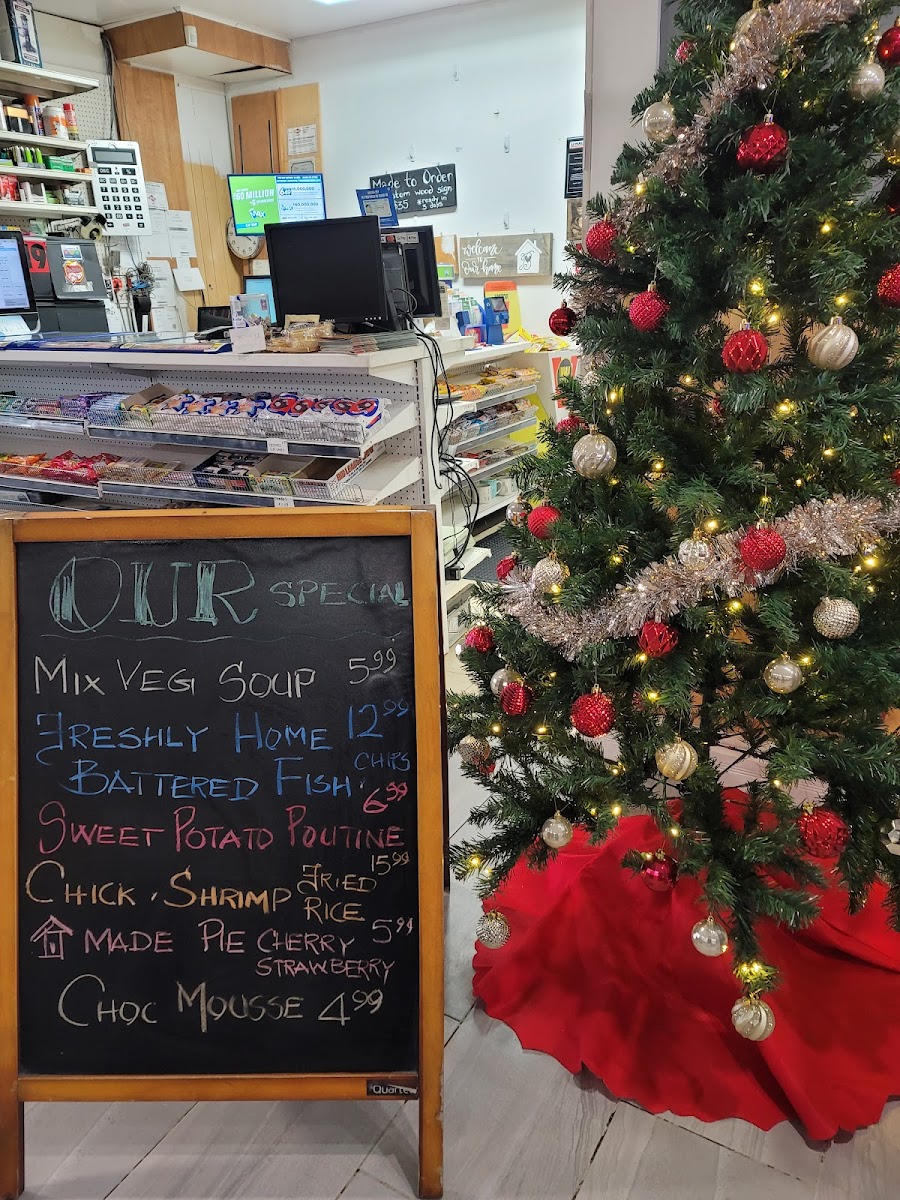 60 MILLION
Made to Order
custom wood sign
$35
ready in
3 days
welcome
to
Our home
OUR SPECIAL
MIX VEG SOUP 5.99
FRESHLY HOME 12.99
BATTERED FISH CHIPS
SWEET POTATO POUTINE 6.99
CHICK, SHRIMP FRIED RICE 15.99
MADE PIE CHERRY 5.99
STRAWBERRY
CHOC MOUSSE 4.99
Quartet